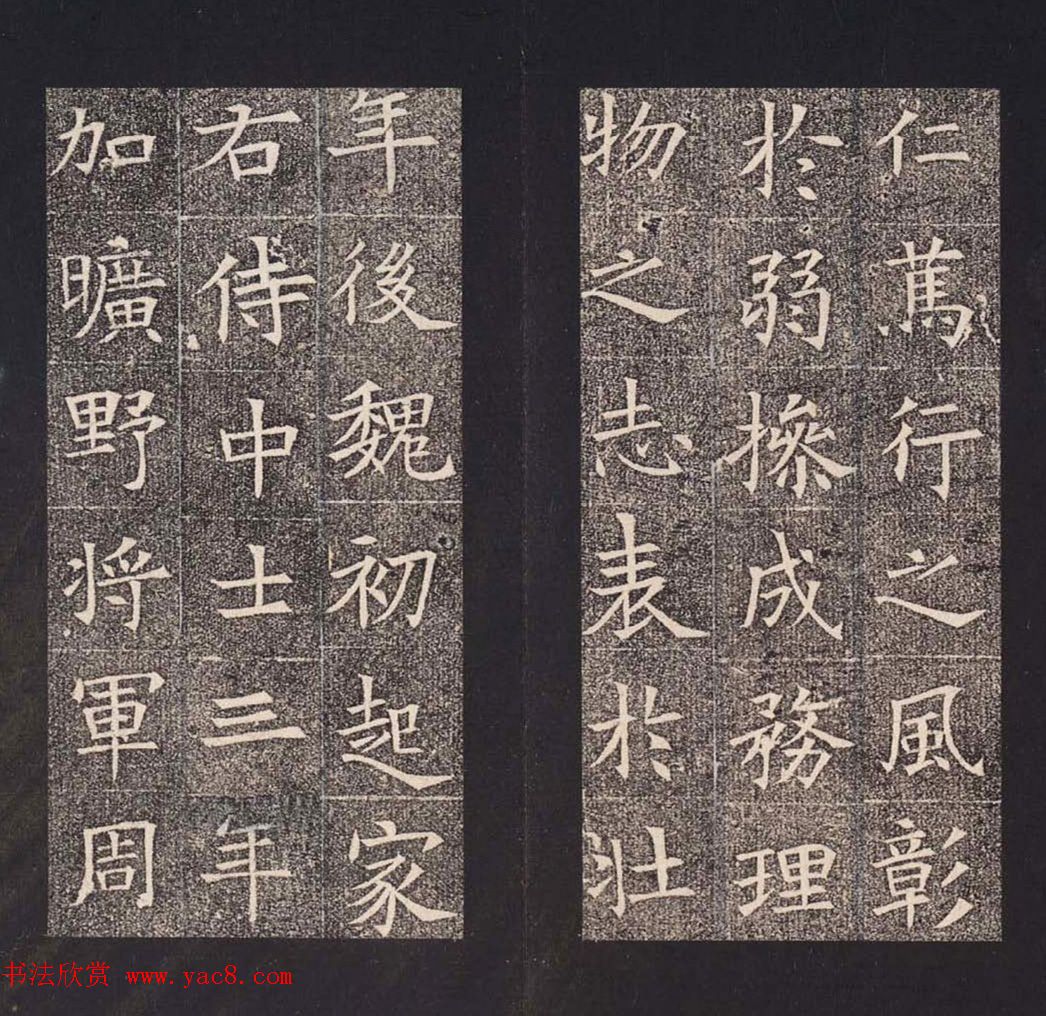 仁萬行之風彰
於弱摻成務理
物之志表於壯
年後魏初起家
右侍中士三年
加曠野将軍周
书法欣赏 www.yac8.com